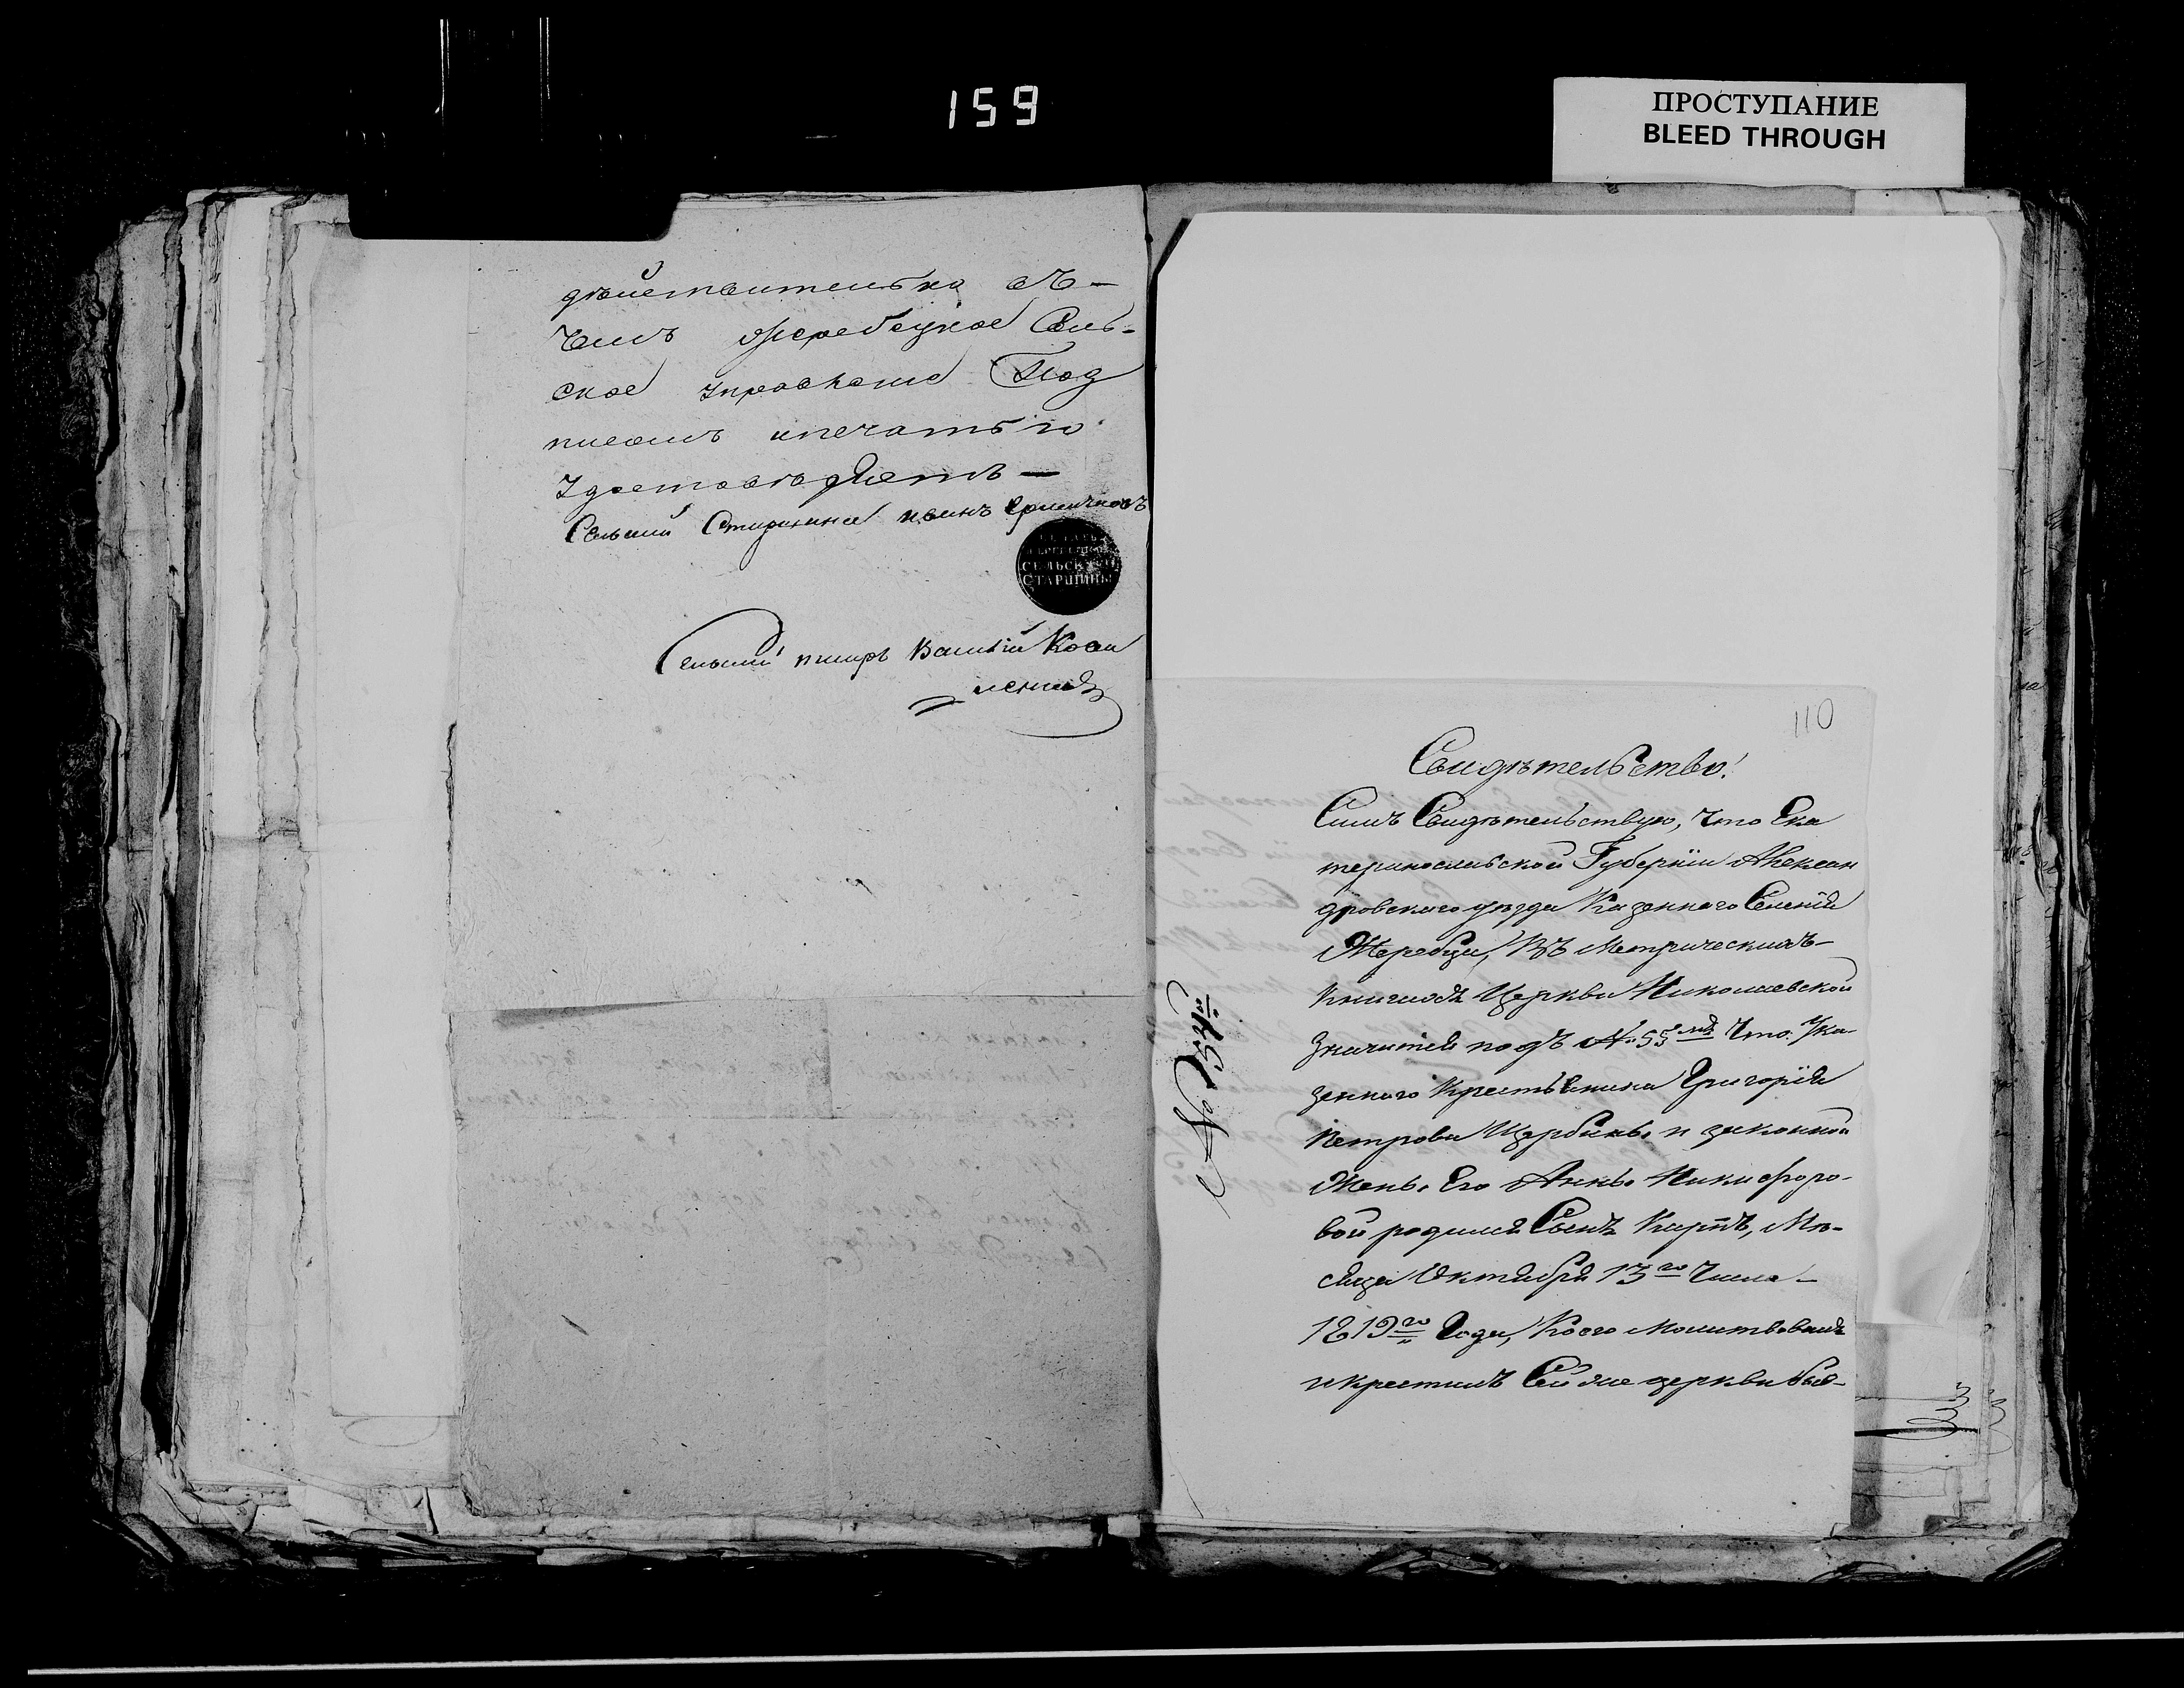 159
ПРОСТУПАНИЕ
BLEED THROUGH
действительна въ-
чемъ Жеребецкое Сель-
ское управление Под
писомъ ипечатью
Удостоверяетъ —
Сельский Старшина иванъ
СЕЛЬСКОГО
СТАРШИНЫ
Сельский писарь Василий
110
Свидѣтельство!
Симъ Свидѣтельствую, что Ека
теринославской Губернiи Алексан
дровского уезда Казенного Селенiя
Жеребца, Въ Метрическихъ-
книгахъ Церкви Николаевской
значится подъ № 55 мъ Что Ука-
зенного Крестьянина Григорiя
Петрова Щербины и законной
Жены Его Анны Никифоро-
вой родился Сынъ Карпъ, Мѣ-
сяца Октября 13го Числа-
1819го Года, Коего молитвовалъ
икрестилъ Сей же церкви
№ 54й